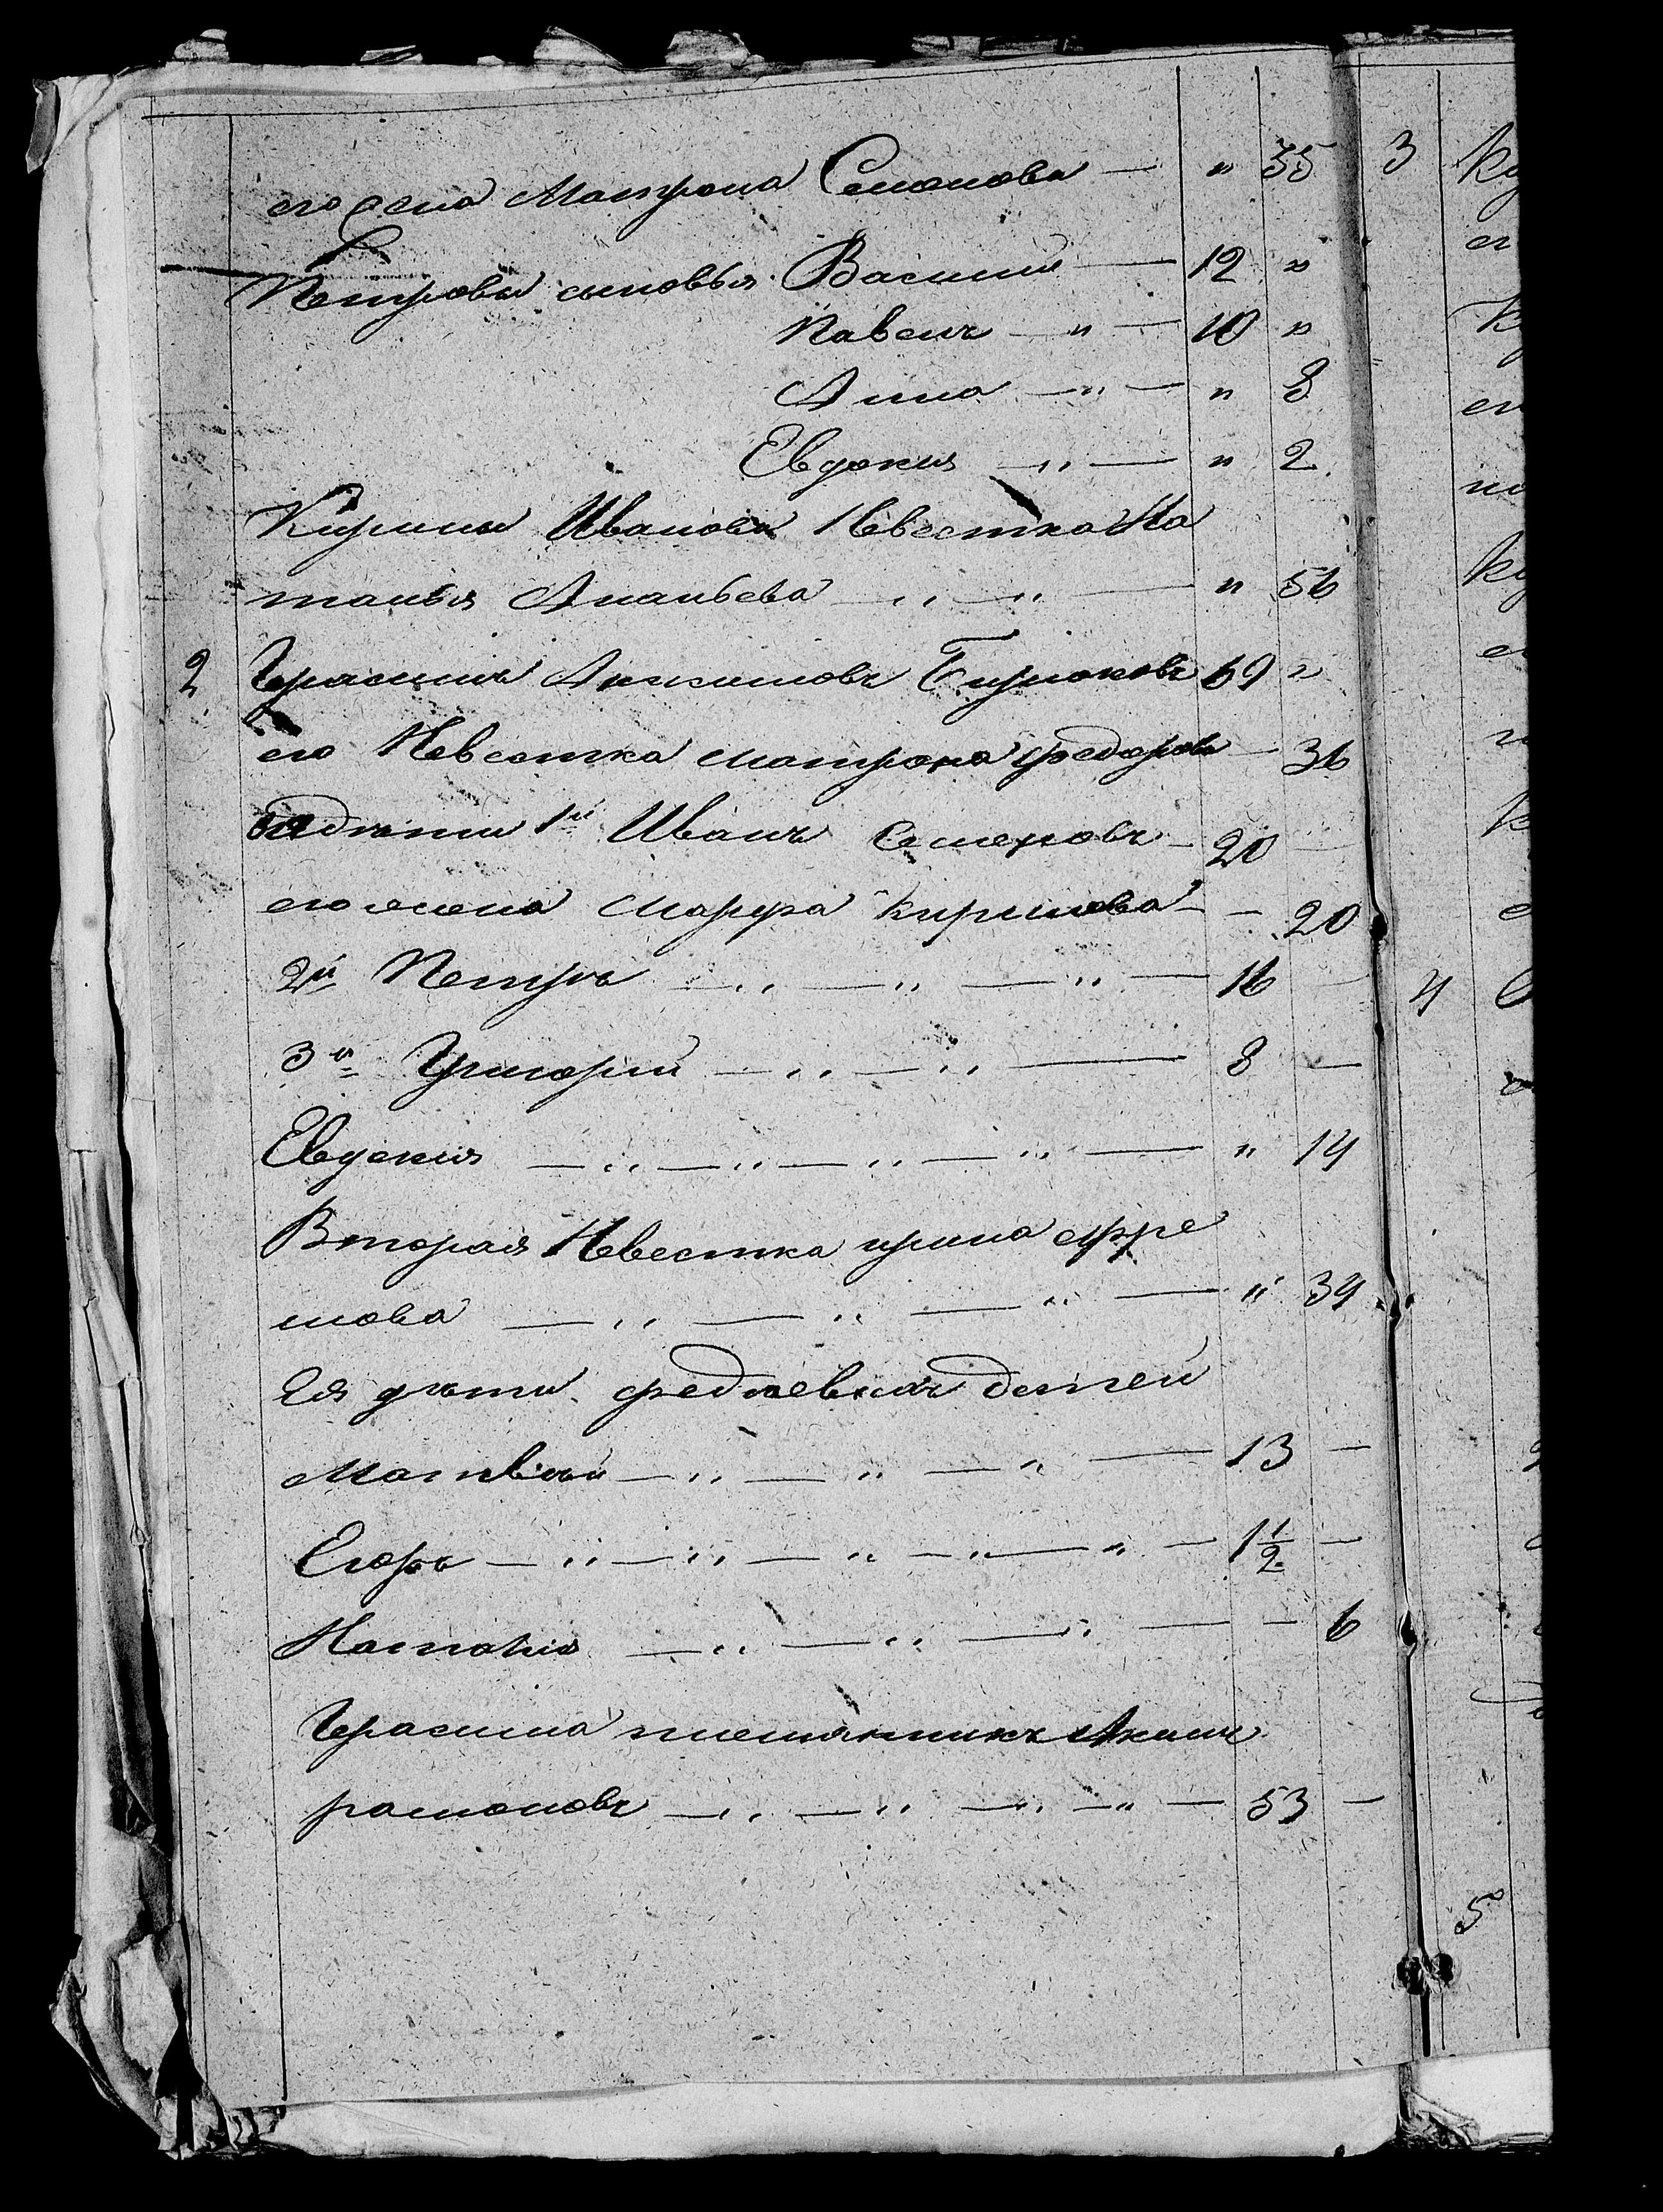 его жена Матрона Семенова — " 35
Петровы сыновья Василий — 12 "
Павелъ — " — 10 "
Анна — " — " 8
Евдокия — " — " 2
Кирилы Иванова Невестка На
талья Ананьева — " — " — " 56
2 Герасимъ Акимовъ Бирюковъ 69 "
его Невестка Матрона Федорова — 36
дѣти 1й Иванъ Семеновъ — 20 —
его жена Марфа Кирилова — — 20
2й Петръ — " — " — " — 16 —
3й Григорий — " — " — 8 —
Евдокия — " — " — " — " — " 14
Вторая Невестка ирина ефре
мова — " — " — " — " 39
Ея дѣти
Матвѣй — " — " — " — 13 —
Егоръ — " — " — " — " — " — 1 1/2 —
Наталия — " — " — " — — 6
Герасима племянникъ Акимъ
рамоновъ — " — " — " — " — 53 —
3
4
5